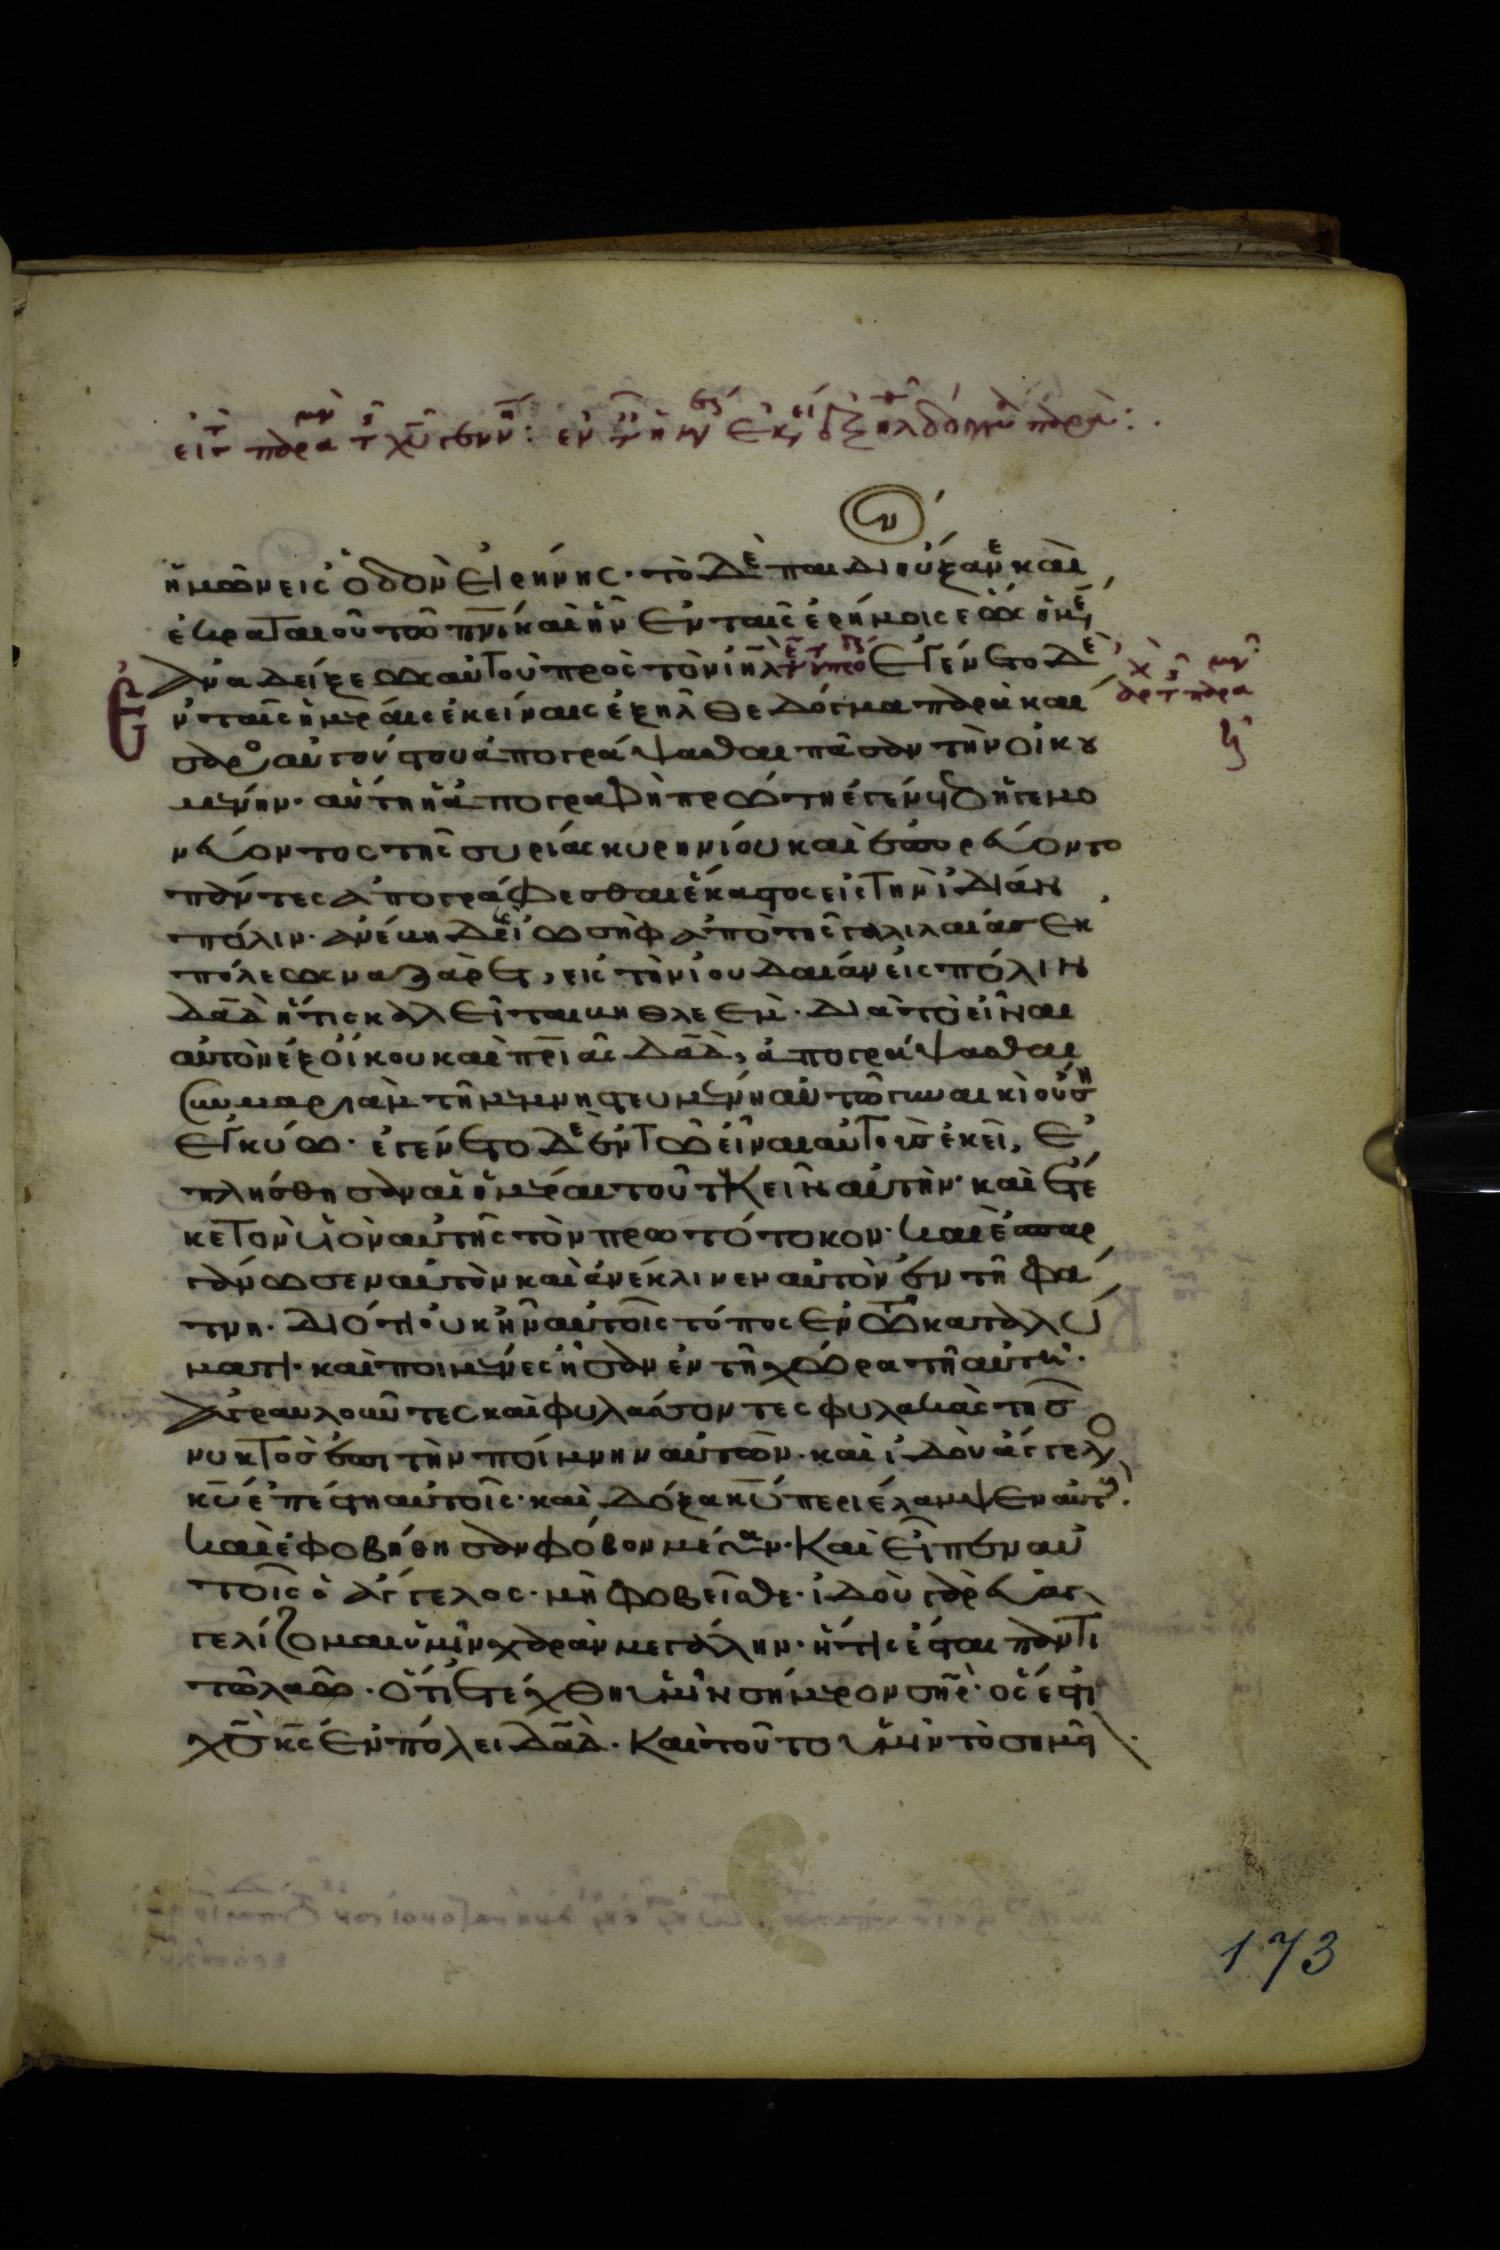 ἡμῶν εἰς ὁδὸν εἰρήνης· τὸ δὲ παιδίον ηὔξανε καὶ
ἐκραταιοῦτο πνι· καὶ ἦν ἐν ταῖς ἐρήμοις ἕως ἡμέ
ἀναδείξεως αὐτοῦ πρὸς τὸν ιηλ Ἐγένετο δὲ
ἐν ταῖς ἡμέραις ἐκείναις ἐξῆλθε δόγμα παρὰ και
σαρος αὐγούστου ἀπογράψασθαι πᾶσαν τὴν οἰκου
μένην· αὕτη ἡ ἀπογραφὴ πρώτη ἐγένετο ἡγεμο
νεύοντος τῆς συρίας κυρηνίου καὶ ἐπορεύοντο
πάντες ἀπογράφεσθαι ἕκαστος εἰς τὴν ἰδίαν
πόλιν· ἀνέβη δὲ ἰωσὴφ ἀπὸ τῆς γαλιλαίας ἐκ
πόλεως ναζαρὲτ, εἰς τὴν ἰουδαίαν εἰς πόλιν
δαδ ἥτις καλεῖται βηθλεέμ· διὰ τὸ εἶναι
αὐτὸν ἐξ οἴκου καὶ πριᾶς δαδ, ἀπογράψασθαι
σὺν μαριὰμ τῇ μεμνηστευμένῃ αὐτῷ γυναικὶ οὔσῃ
ἐγκύω· ἐγένετο δὲ ἐν τῷ εἶναι αὐτοὺς ἐκεῖ, ἐ
πλήσθησαν αἱ ἡμέραι τοῦ τεκεῖν αὐτήν· καὶ ἔτε
κε τὸν υἱὸν αὐτῆς τὸν πρωτότοκον· καὶ ἐσπαρ
γάνωσεν αὐτὸν καὶ ἀνέκλινεν αὐτὸν ἐν τῇ φά
τνη· διότι οὐκ ἦν αὐτοῖς τόπος ἐν τῷ καταλύ
ματι· καὶ ποιμένες ἦσαν ἐν τῇ χώρα τῇ αὐτῇ·
ἀγραυλοῦντες καὶ φυλάσσοντες φυλακὰς τῆς
νυκτὸς ἐπὶ τὴν ποίμνην αὐτῶν· καὶ ἰδοὺ ἄγγελος
κυ ἐπέστη αὐτοῖς· καὶ δόξα κυ περιέλαμψεν αὐτούς·
καὶ ἐφοβήθησαν φόβον μέγαν· Καὶ εἶπεν αὐ
τοῖς ὁ ἄγγελος· μὴ φοβεῖσθε· ἰδοὺ γὰρ εὐαγ
γελίζομαι ὑμῖν χαρὰν μεγάλην· ἥτις ἔσται παντὶ
τῷ λαῷ· ὅτι ἐτέχθη ὑμῖν σήμερον σηρ· ὅς ἐστι
χς κς ἐν πόλει δαδ· Καὶ τοῦτο ὑμῖν τὸ σημεῖ
173